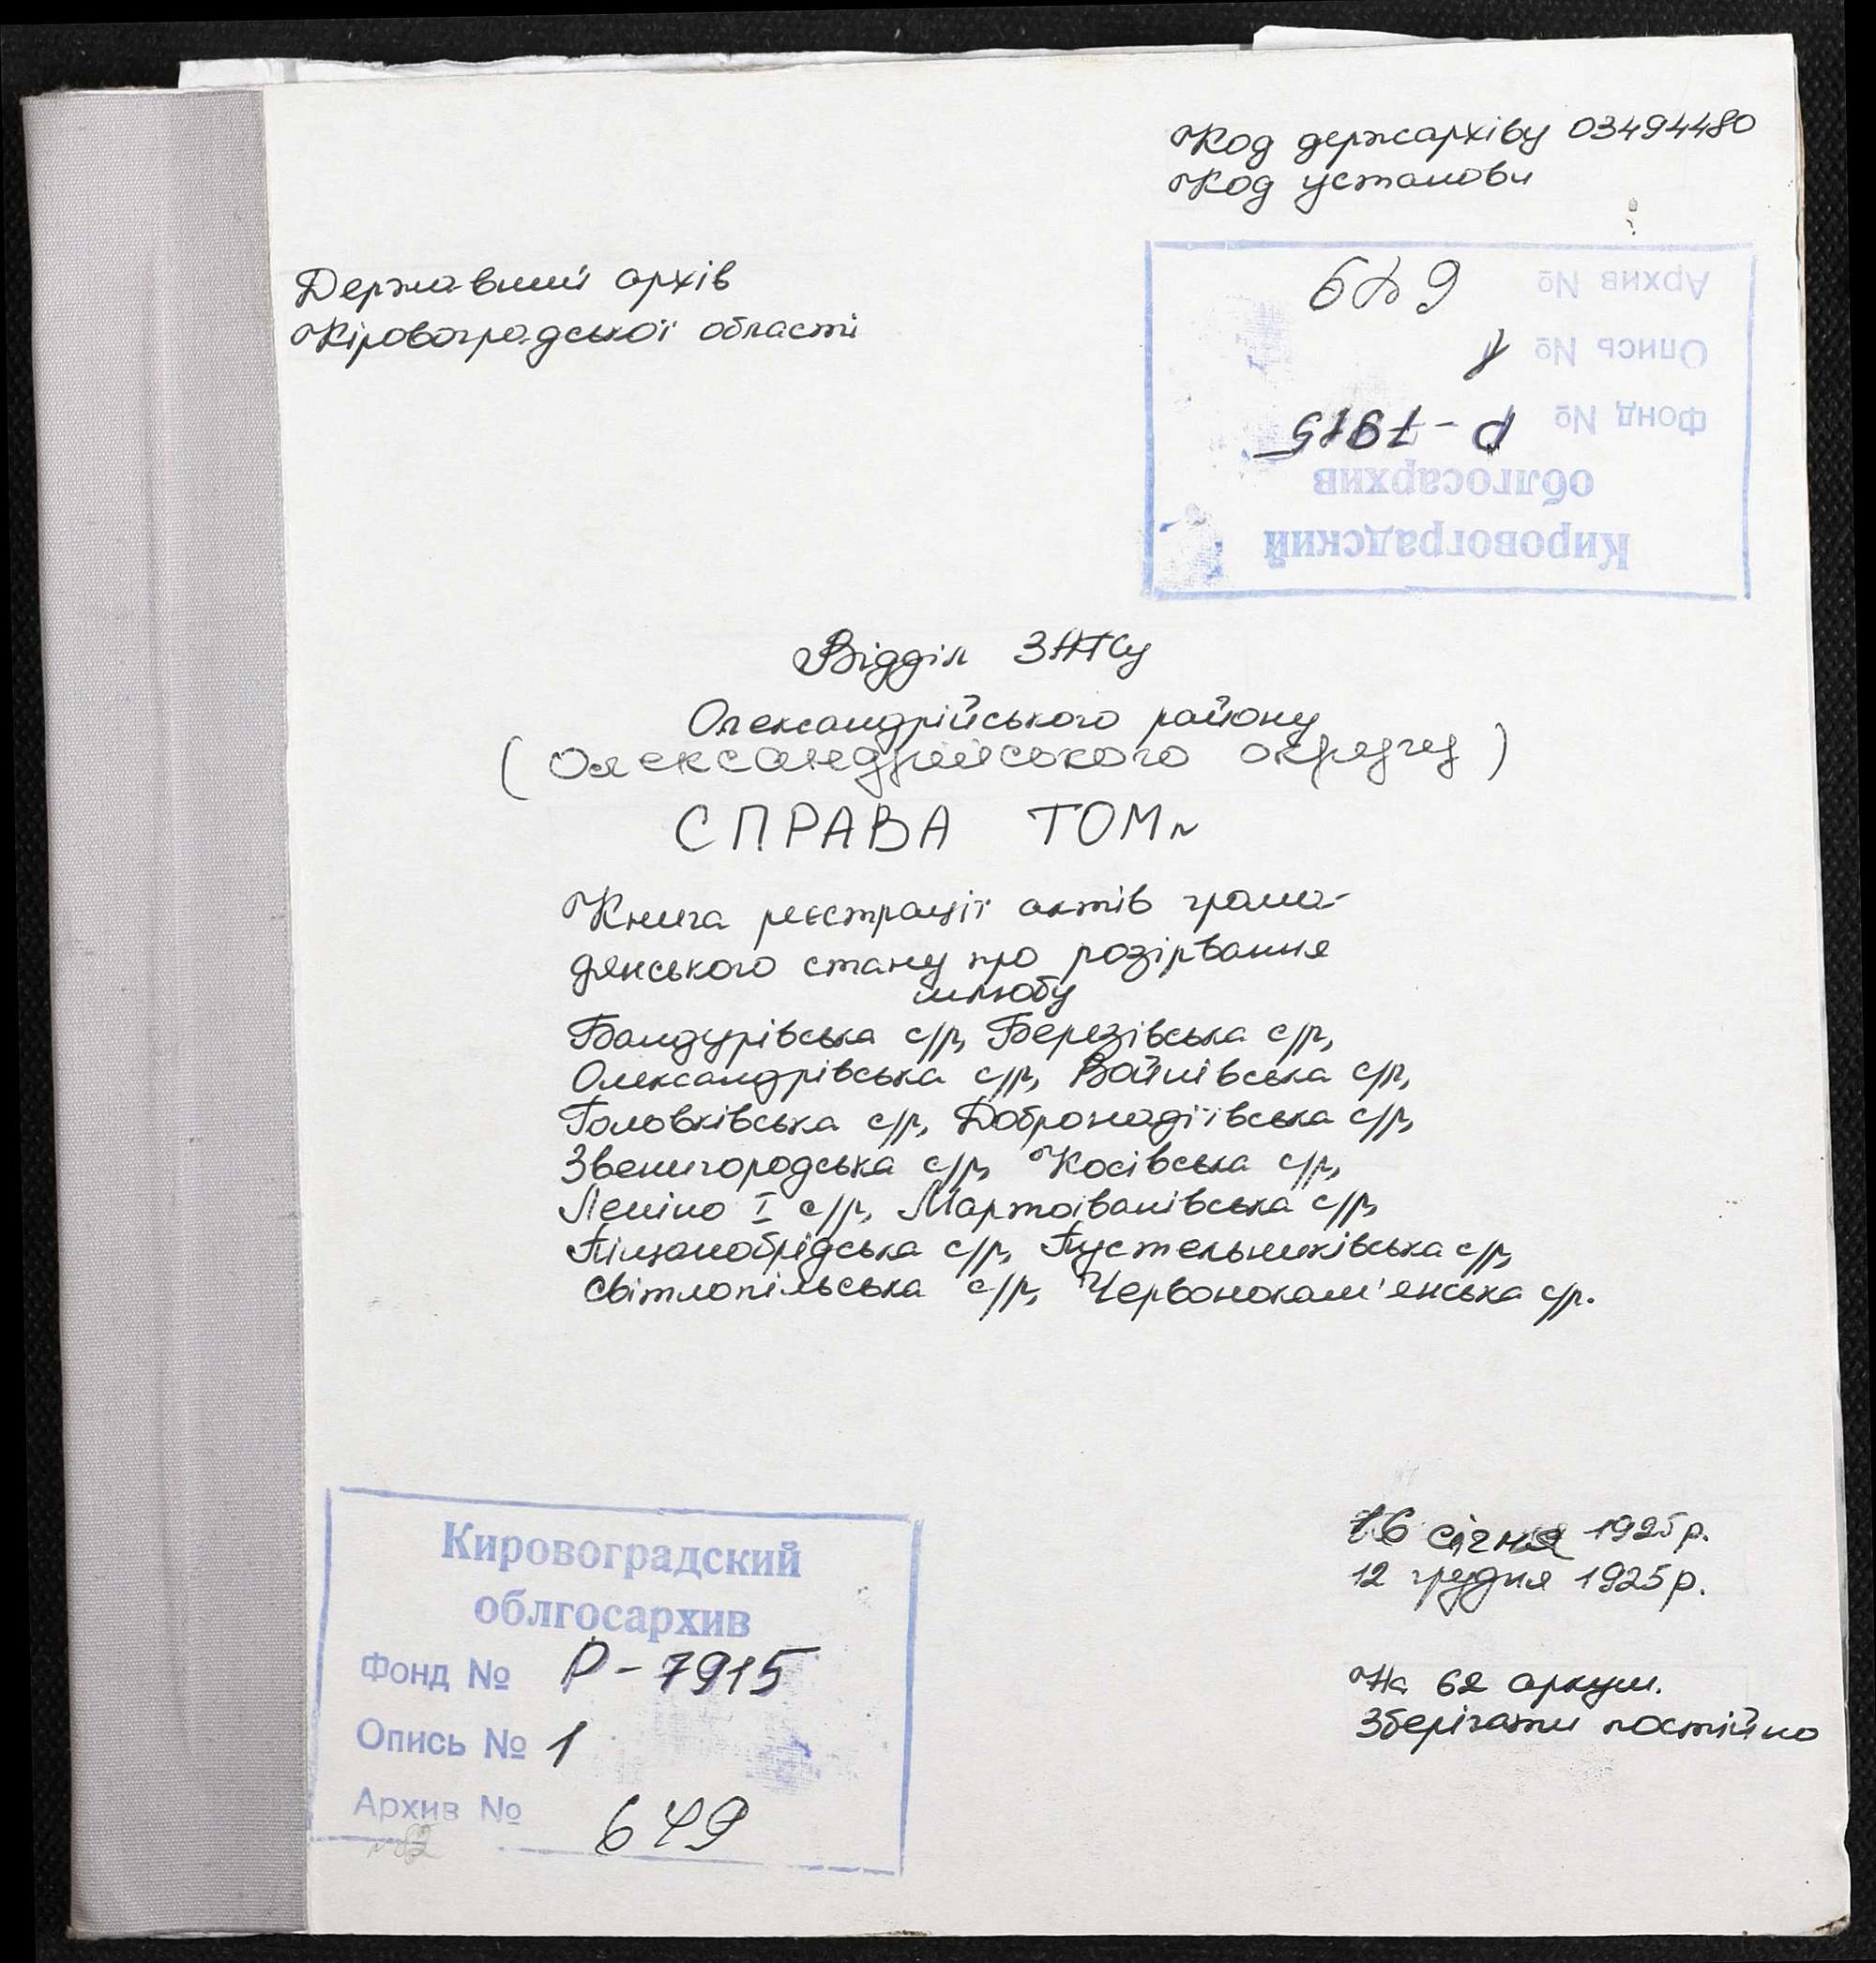 Код держархіву 03494480
Код установи
Державний архів
Кіровоградської області
Кировоградский
облгосархив
Фонд № Р-7915
Опись № 1
Архив № 649
Відділ ЗАГСу
Олександрійського району
(Олександрійського округу)
СПРАВА ТОМ №
Книга реєстрації актів грома-
дянського стану про розірвання
шлюбу
Бандурівська с/р, Березівська с/р,
Олександрівська с/р, Войнівська с/р,
Головківська с/р, Добронадіївська с/р,
Звенигородська с/р, Косівська с/р,
Леніно I с/р, Мартоіванівська с/р,
Піщанобрідська с/р, Пустельниківська с/р,
Світлопільська с/р, Червонокам'янська с/р.
16 січня 1925р.
12 грудня 1925р.
На 62 аркуш.
Зберігати постійно
Кировоградский
облгосархив
Фонд № Р-7915
Опись № 1
Архив № 649